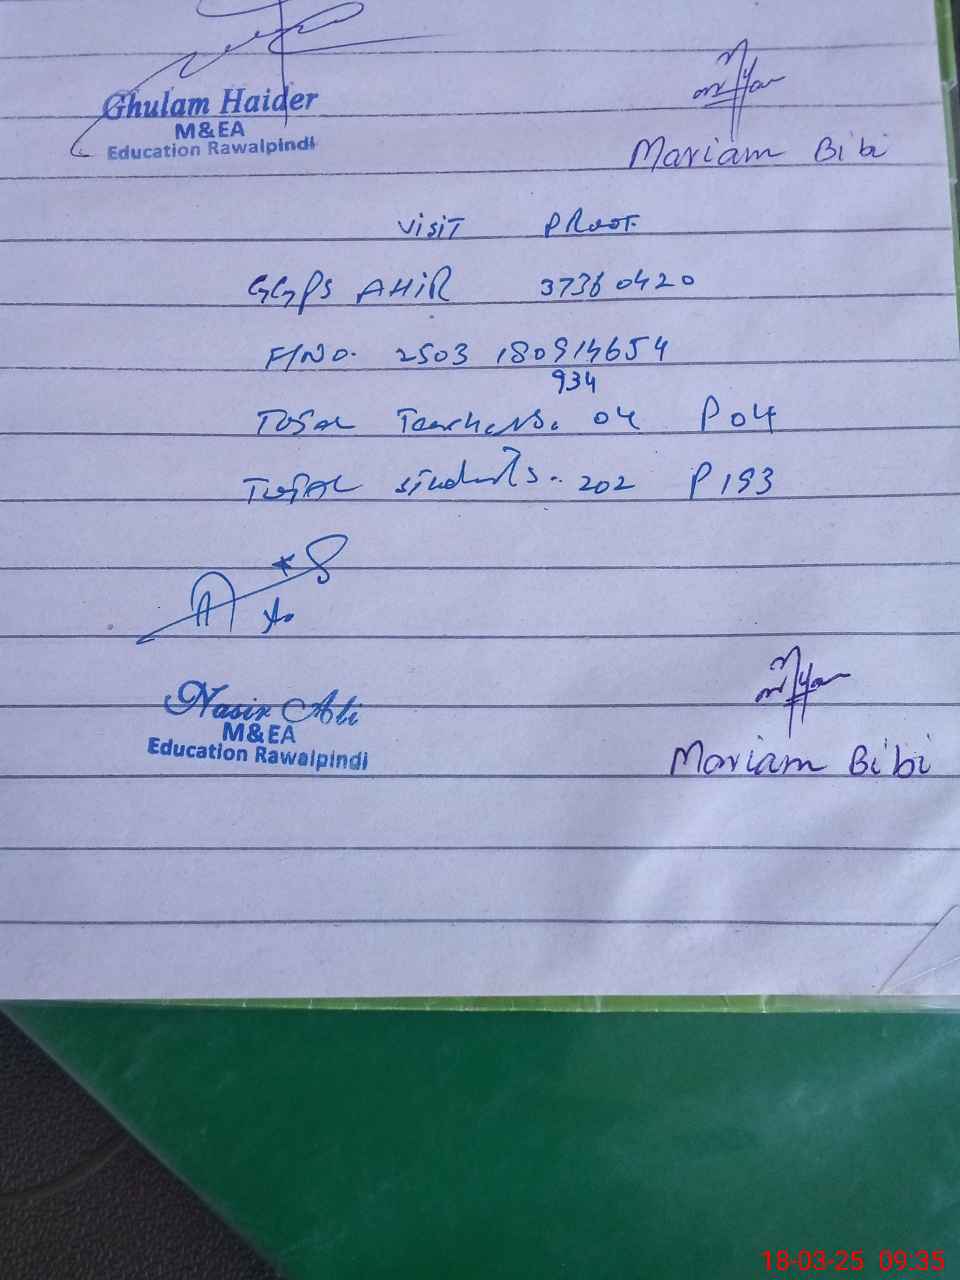 Ghulam Haider
M&EA
Education Rawalpindi
Mariam Bibi
Visit Proof.
GGPS AHIR 37360420
F/NO. 2503 180914654
934
Total Teachers. 04 P 04
Total students.. 202 P 193
Nasir Ali
M&EA
Education Rawalpindi
Mariam Bibi
18-03-25 09:35